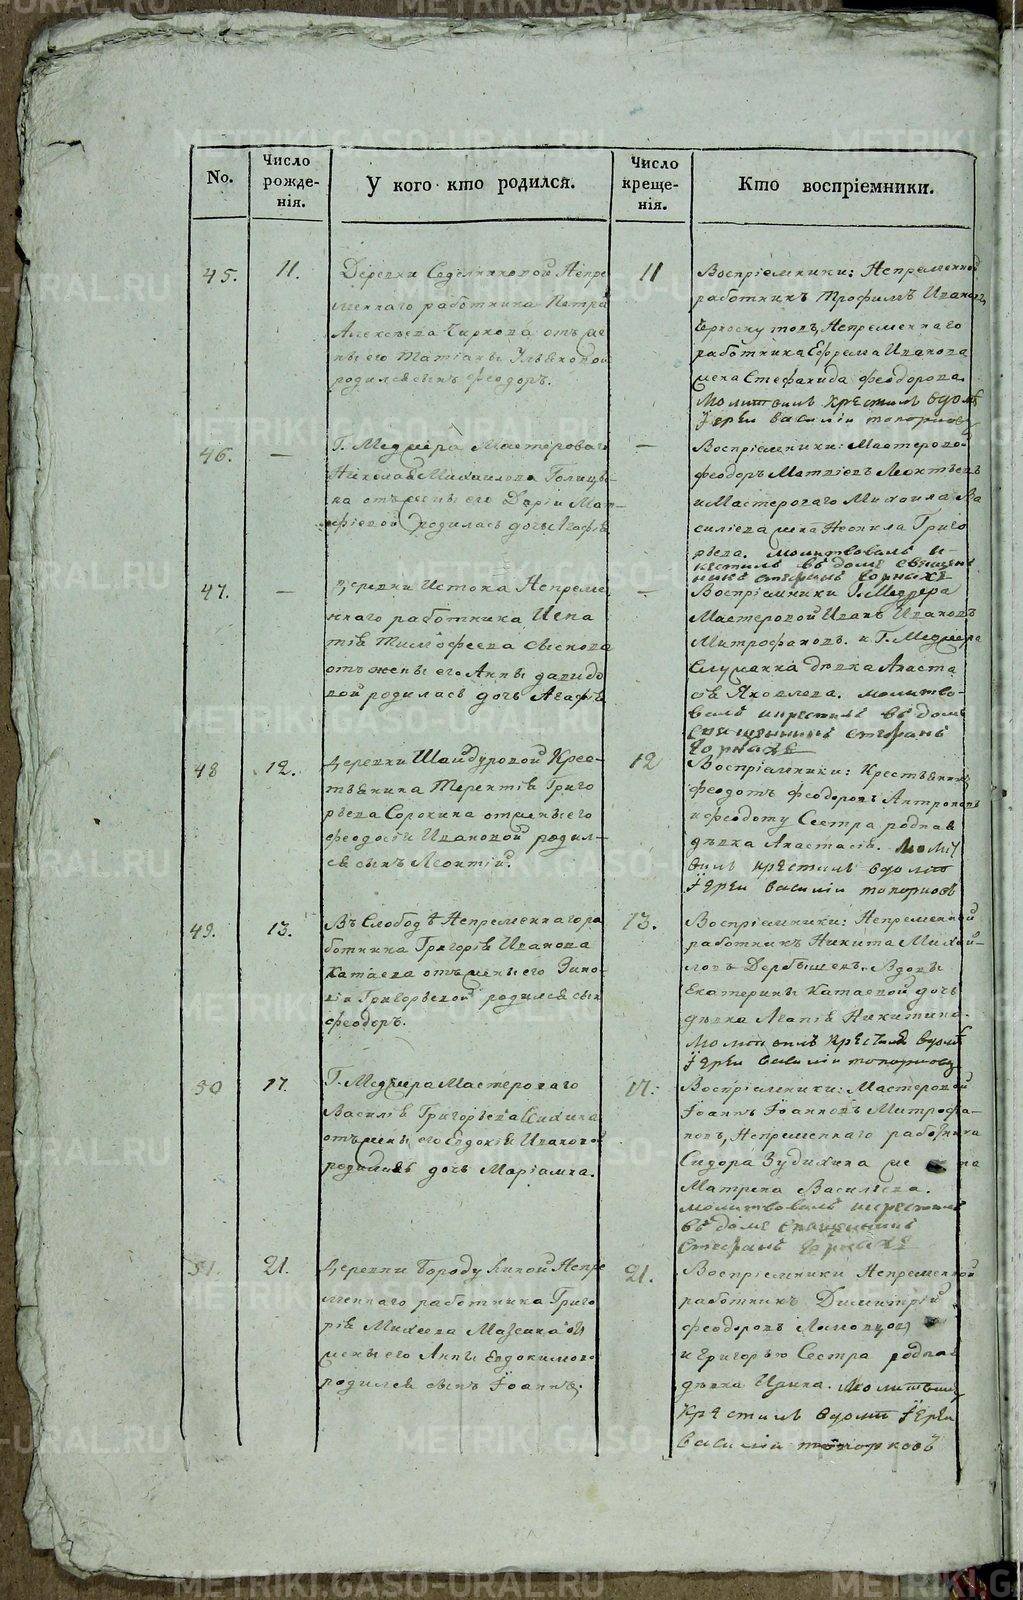 No.
Число рожде-нія.
У кого кто родился.
Число креще-нія.
Кто воспріемники.
45.
11.
Деревни Седельниковой Непре
меннаго работника Петра
Алексѣева Чиркова отъ же
ны его Татіаны Ильиной
родился сынъ Феодоръ.
11
Воспріемники: Непременной
работникъ Трофимъ Иванов
Непременнаго
работника Ефрема Иванова
жена Стефанида Феодорова.
молитвилъ крестилъ вдомѣ
Іерей василій топорковъ
46.
—
Г. Меджера Мастероваго
Николая Михаилова Голицы
на отъ жены его Даріи Мат-
фіевой родилась дочь Агафія
—
Воспріемники: Мастеровой
Феодоръ Матвіевъ Леонтьевъ
и Мастероваго Михаила Ва
силіева жена Неонила Григо
рьева. молитвовалъ и
кестилъ въ домѣ священ
никъ стефанъ
47.
—
Деревни Истока Непреме
ннаго работника Игна
тія Тимофеева
отъ жены его Анны давидо
вой родилась дочь Агафія
—
Воспріемники Г. Меджера
Мастеровой Иванъ Ивановъ
Митрофановъ. и Г. Меджера
дѣвка Анаста
сія Яковлева. молитво-
валъ икрестилъ въ домѣ
священникъ стефанъ
48
12.
Деревни Шайдуровой Крес-
тьянина Терентія Григо
рьева Сорокина отжены его
Феодосіи Ивановой родил-
ся сынъ Леонтій.
12
Воспріемники: Крестьянинъ
Феодотъ Феодоровъ Антроповъ
и Феодоту Сестра родная
дѣвка Анастасія. молит
вилъ крестилъ вдомѣ
Іерей василій топорковъ
49.
13.
Въ Слободѣ Непременнаго ра
ботника Григорія Иванова
Катаева отъ жены его Зино-
віи Григорьевой родился сын
Феодоръ.
13.
Воспріемники: Непременной
работникъ Никита Михай-
ловъ Дербышевъ. Вдовы
Екатерины Катаевой дочь
дѣвка Агапія Никитина.
молитвилъ крестилъ вдомѣ
Іерей василій топорковъ
50
17.
Г. Меджера Мастероваго
Василія Григорьева
отъ жены его Евдокіи Ивановой
родилась дочь Маріамна.
17.
Воспріемники: Мастеровой
Іоаннъ Іоанновъ Митрофа-
новъ, Непременнаго работника
Сидора Зудихина же на
Матрена Васильева.
молитвовалъ икрестилъ
въ домѣ священникъ
стефанъ
51.
21.
Деревни Бородулиной Непре
меннаго работника Григо
рія Михеева
жены его Анны Евдокимовой
родился сынъ Іоаннъ.
21.
Воспріемники Непременной
работникъ Димитрій
Феодоровъ
и Григорью Сестра родная
дѣвка Ирина. молитвилъ
крестилъ вдомѣ Іерей
василій топорковъ
METRIKI.GASO-URAL.RU